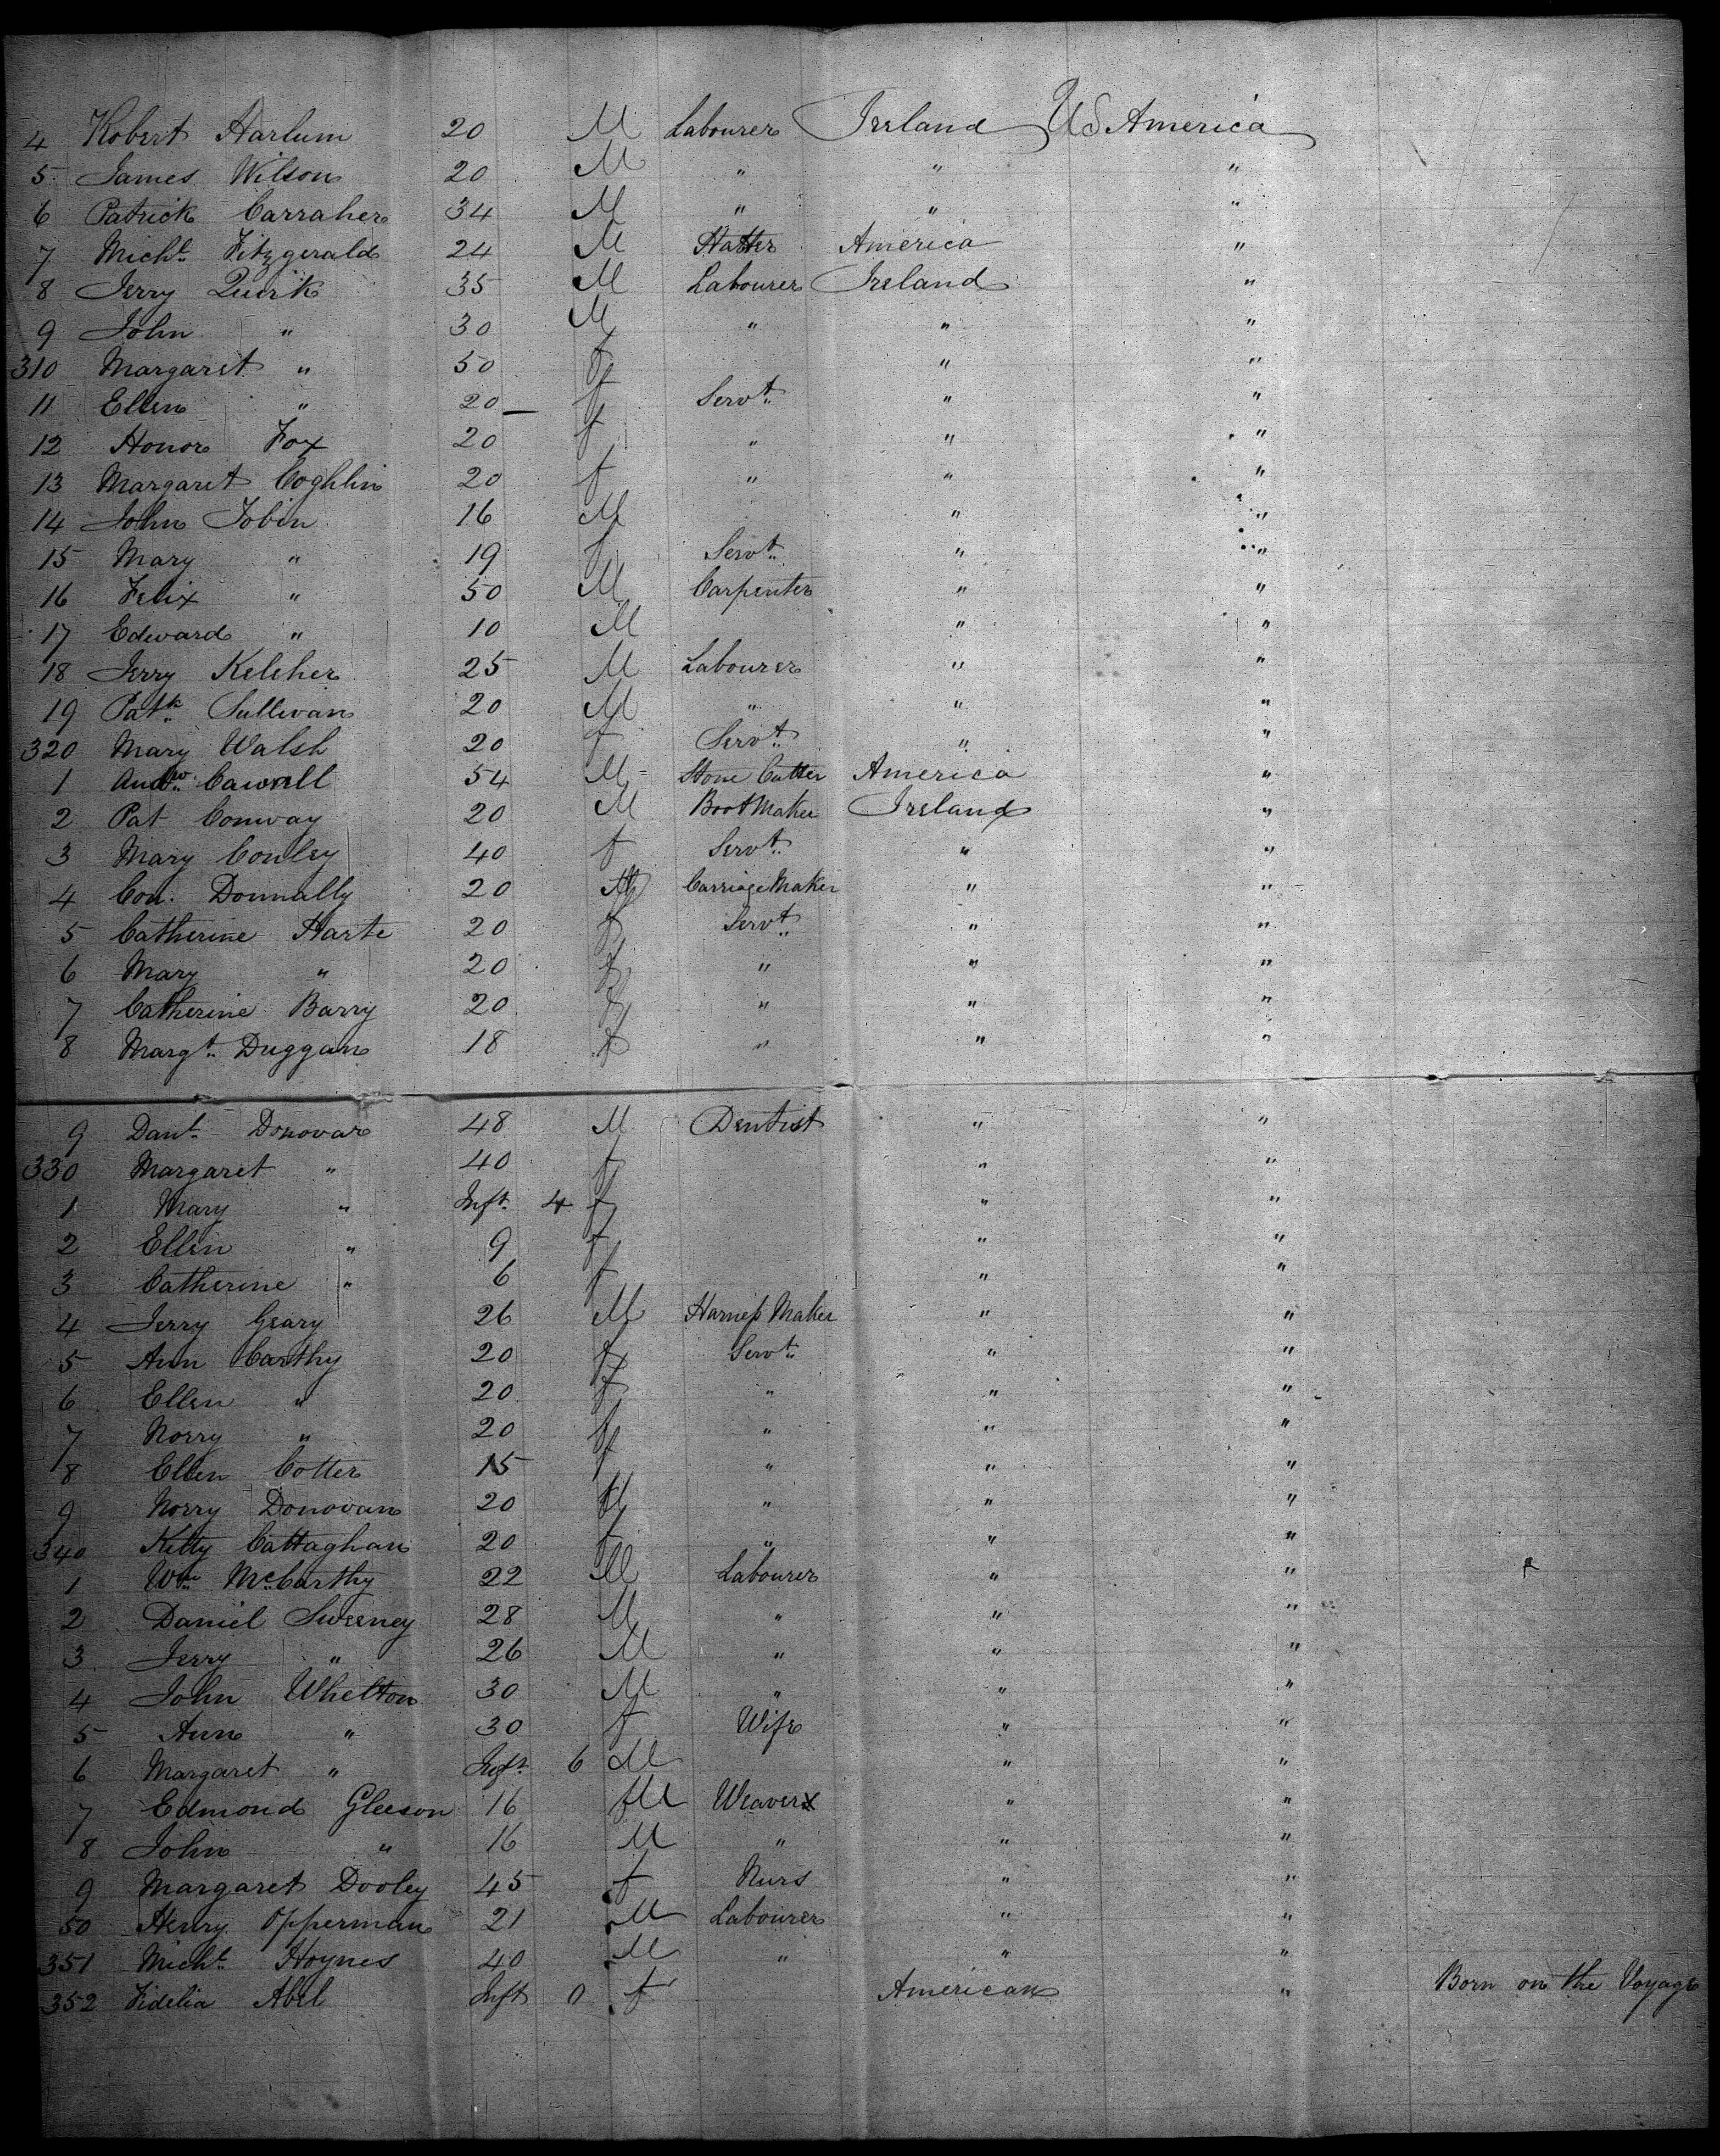 4 Robert Harlum 20 M Labourer Ireland US America
5 James Wilson 20 M " " "
6 Patrick Carraher 34 M " " "
7 Michl. Fitzgerald 24 M Hatter America "
8 Jerry Quirk 35 M Labourer Ireland "
9 John " 30 M " " "
310 Margaret " 50 f " "
11 Ellen " 20 f Servt. " "
12 Honor Fox 20 f " " "
13 Margaret Coghlin 20 f " " "
14 John Tobin 16 M " "
15 Mary " 19 f Servt. " "
16 Felix " 50 M Carpenter " "
17 Edward " 10 M " "
18 Jerry Keleher 25 M Labourer " "
19 Patk. Sullivan 20 M " " "
320 Mary Walsh 20 f Servt. " "
1 Andw. 54 M Stone Cutter America "
2 Pat Conway 20 M Boot Maker Ireland "
3 Mary Conley 40 f Servt. " "
4 Con. Donnally 20 M Carriage Maker " "
5 Catherine Harte 20 f Servt. " "
6 Mary " 20 f " " "
7 Catherine Barry 20 f " " "
8 Margt. Duggan 18 f " " "
9 Danl. Donovan 48 M Dentist " "
330 Margaret " 40 f " "
1 Mary " Inft. 4 f " "
2 Ellen " 9 f " "
3 Catherine " 6 f " "
4 Jerry Geary 26 M Harness Maker " "
5 Ann Carthy 20 f Servt. " "
6 Ellen " 20 f " " "
7 Norry " 20 f " " "
8 Ellen Cotter 15 f " " "
9 Norry Donovan 20 f " " "
340 Kitty Cattaghan 20 f " " "
1 Wm McCarthy 22 M Labourer " "
2 Daniel Sweeney 28 M " " "
3 Jerry " 26 M " " "
4 John Whelton 30 M " " "
5 Ann " 30 f Wife " "
6 Margaret " Inft. 6 M " "
7 Edmond Gleeson 16 M Weaver " "
8 John " 16 M " " "
9 Margaret Dooley 45 f Nurs " "
50 Henry Opperman 21 M Labourer " "
351 Michl. Hoynes 40 M " " "
352 Fidelia Abel Inft 0 f American " Born on the Voyage